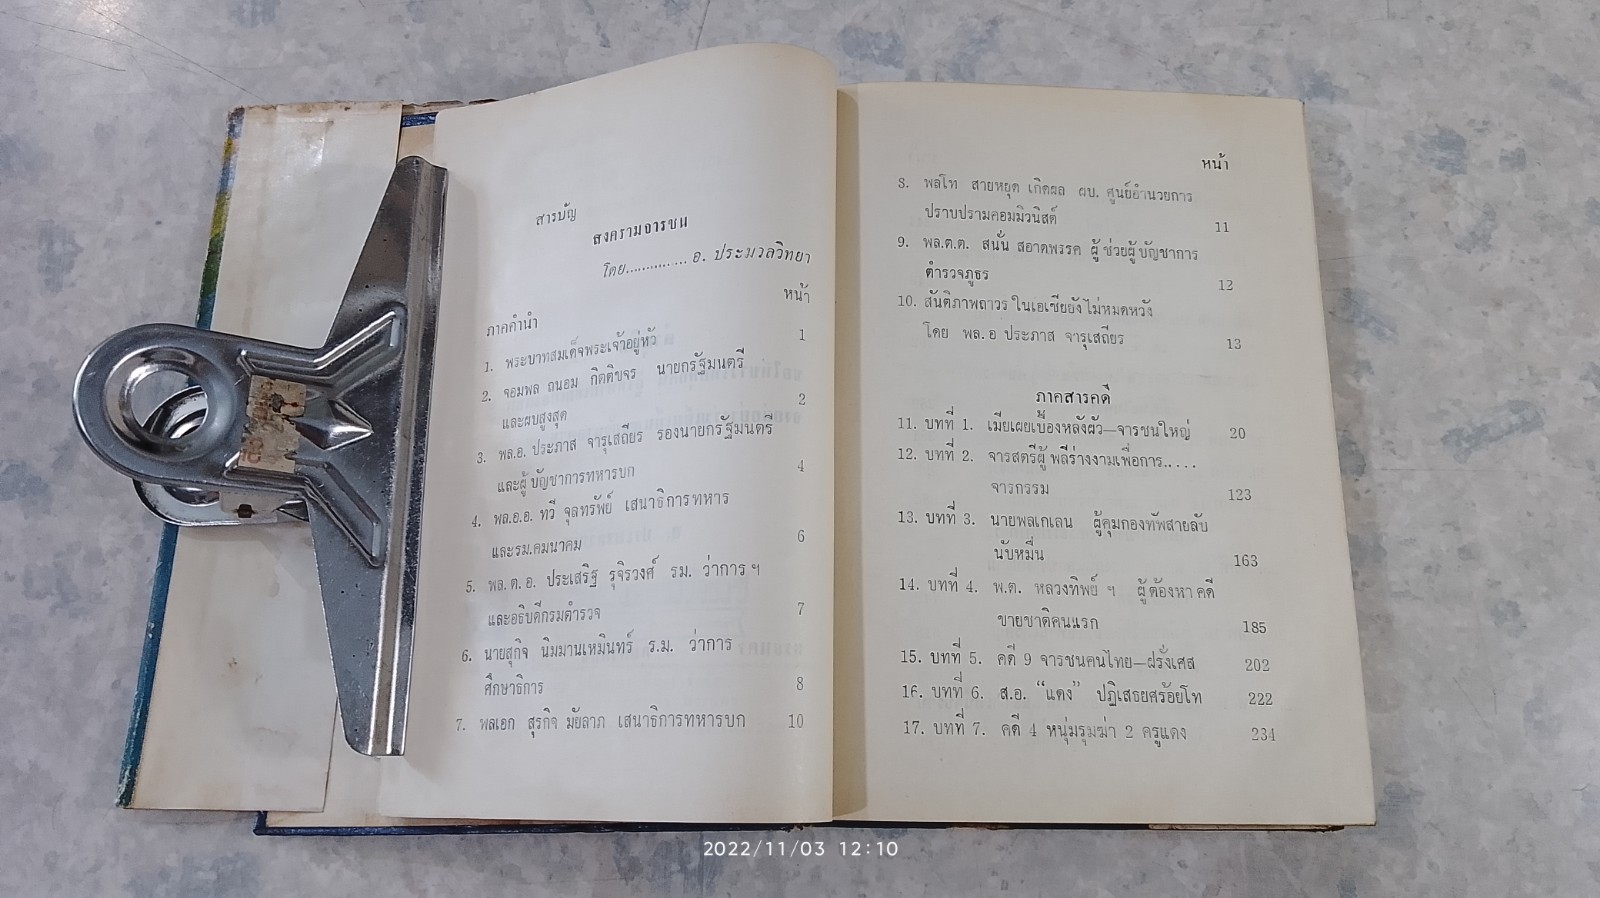 สารบัญ
สงครามจารชน
โดย............. อ. ประมวลวิทยา
หน้า
ภาคคำนำ
1. พระบาทสมเด็จพระเจ้าอยู่หัว 1
2. จอมพล ถนอม กิตติขจร นายกรัฐมนตรี
และผบสูงสุด 2
3. พล.อ. ประภาส จารุเสถียร รองนายกรัฐมนตรี
และผู้บัญชาการทหารบก 4
4. พล.อ.อ. ทวี จุลทรัพย์ เสนาธิการทหาร
และรม.คมนาคม 6
5. พล. ต. อ. ประเสริฐ รุจิรวงศ์ รม. ว่าการ ฯ
และอธิบดีกรมตำรวจ 7
6. นายสุกิจ นิมมานเหมินทร์ ร.ม. ว่าการ
ศึกษาธิการ 8
7. พลเอก สุรกิจ มัยลาภ เสนาธิการทหารบก 10
หน้า
8. พลโท สายหยุด เกิดผล ผบ. ศูนย์อำนวยการ
ปราบปรามคอมมิวนิสต์ 11
9. พล.ต.ต. สนั่น สอาดพรรค ผู้ช่วยผู้บัญชาการ
ตำรวจภูธร 12
10. สันติภาพถาวร ในเอเซียยังไม่หมดหวัง
โดย พล.อ ประภาส จารุเสถียร 13
ภาคสารคดี
11. บทที่ 1. เมียเผยเบื้องหลังผัว—จารชนใหญ่ 20
12. บทที่ 2. จารสตรีผู้พลีร่างงามเพื่อการ.....
จารกรรม 123
13. บทที่ 3. นายพลเกเลน ผู้คุมกองทัพสายลับ
นับหมื่น 163
14. บทที่ 4. พ.ต. หลวงทิพย์ ฯ ผู้ต้องหา คดี
ขายชาติคนแรก 185
15. บทที่ 5. คดี 9 จารชนคนไทย—ฝรั่งเศส 202
16. บทที่ 6. ส.อ. “แดง” ปฏิเสธยศร้อยโท 222
17. บทที่ 7. คดี 4 หนุ่มรุมฆ่า 2 ครูแดง 234
2022/11/03 12:10